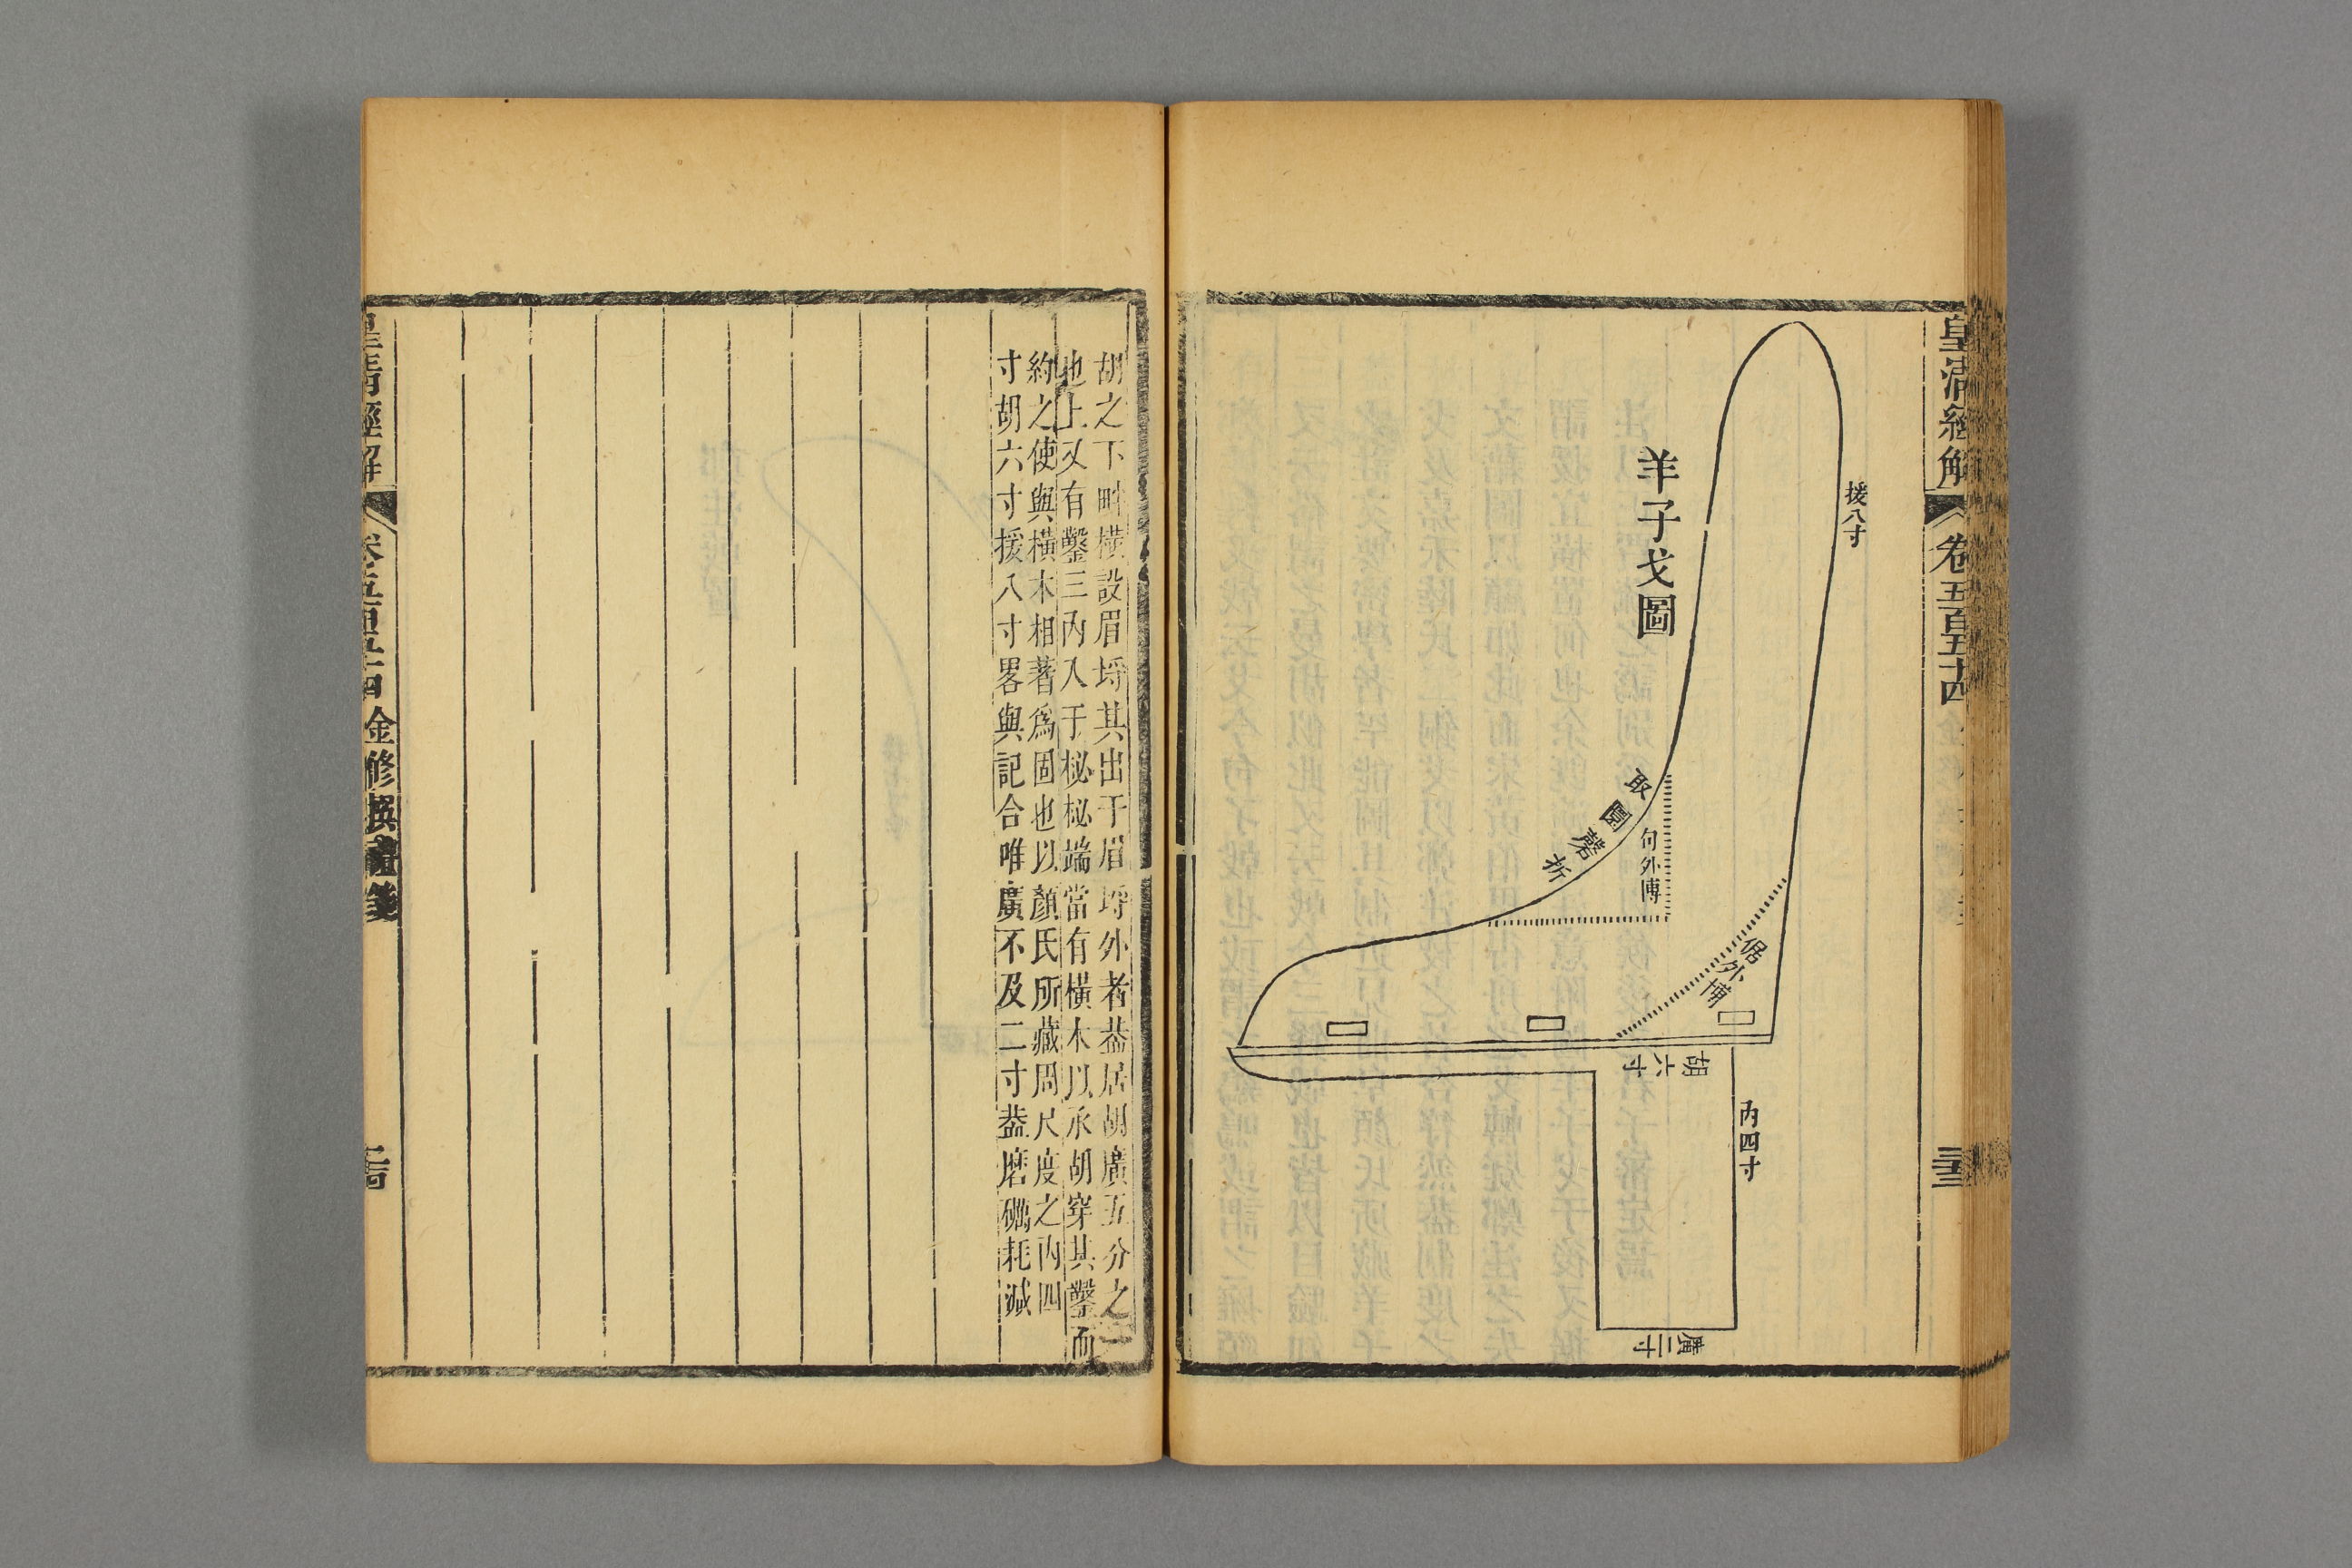 皇清經解
卷五百五十四
三
援八寸
羊子戈圖
取圜磬折
句外博
倨外博
胡六寸
內四寸
廣二寸
胡之下畔橫設眉埒其出于眉埒外者葢居胡廣五分之一
也上又有鑿三內入于柲柲端當有橫木以承胡穿其鑿而
約之使與橫木相著爲固也以顏氏所藏周尺度之內四
寸胡六寸援八寸畧與記合唯廣不及二寸葢磨礲耗減
皇清經解
卷五百五十四
金修撰禮箋